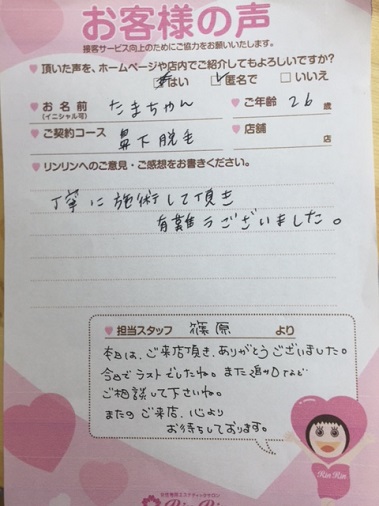 お客様の声
接客サービス向上のためにご協力をお願いいたします。
頂いた声を、ホームページや店内でご紹介してもよろしいですか?
はい 匿名で いいえ
お名前 たまちゃん ご年齢 26 歳
(イニシャル可)
ご契約コース 鼻下脱毛 店舗 店
リンリンへのご意見・ご感想をお書きください。
丁寧に施術して頂き
有難うございました。
担当スタッフ 篠原 より
本日は、ご来店頂き、ありがとうございました。
今日でラストでしたね。また追加など
ご相談して下さいね。
またのご来店、心より
お待ちしております。
Rin Rin
女性専用エステティックサロン